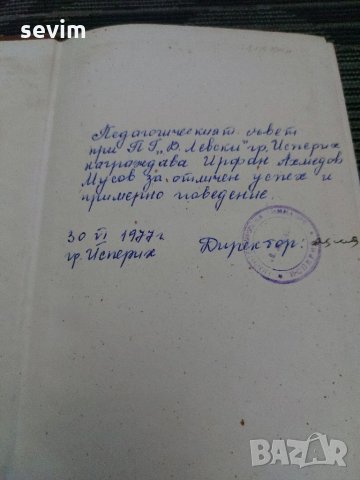 sevim
Педагогическият съвет
при П Г „В. Левски" гр. Исперих
награждава Ирфан Ахмедов
Мусов за отличен успех и
примерно поведение.
30 VI 1977 г.
гр. Исперих
Директор:
BAZAR
bg